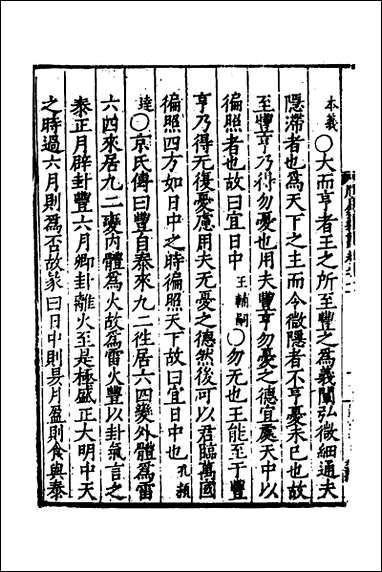 本義○大而亨者王之所至豐之爲義闡弘微細通夫
隱滯者也爲天下之主而令微隱者不亨憂未已也故
至豐亨乃得勿憂也用夫豐亨勿憂之德宜處天中以
徧照者也故曰宜日中王輔嗣○勿无也王能至于豐
亨乃得无復憂慮用夫无憂之德然後可以君臨萬國
徧照四方如日中之時徧照天下故曰宜日中也孔穎
達○京氏傳曰豐自泰來九二徃居六四變外體爲雷
六四來居九二變内體爲火故爲雷火豐以卦氣言之
泰正月辟卦豐六月卿卦離火至是極盛正大明中天
之時過六月則爲否故彖曰日中則昃月盈則食與泰